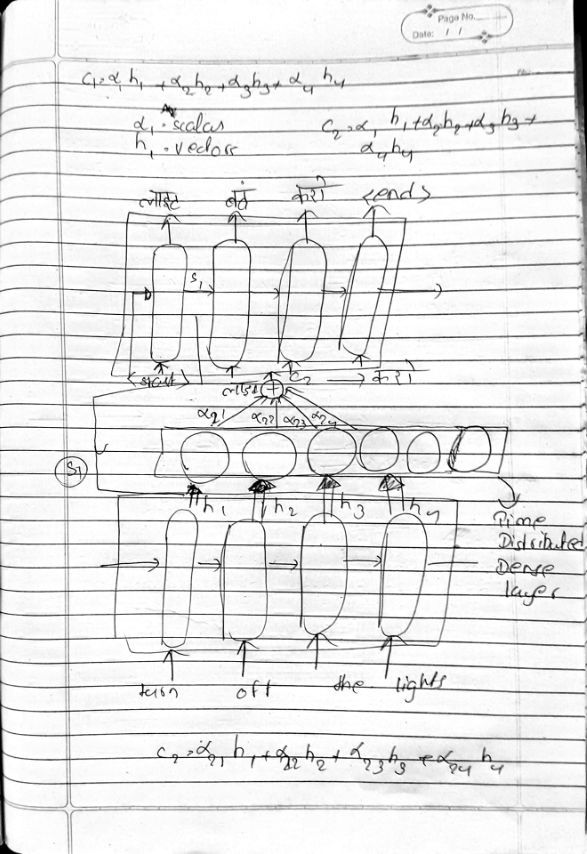 Page No.
Date: / /
C₁ = α₁h₁ + α₂h₂ + α₃h₃ + α₄h₄
α₁ · scalar
h₁ · vectors
C₂ = α₁ h₁ + α₂h₂ + α₃h₃ +
α₄h₄
लाइट बंद करो <end>
S₁
<start> लाइट + C₂ → करो
α₂₁ α₂₂ α₂₃ α₂₄
S₁
h₁ h₂ h₃ h₄
Time
Distributed
Dense
layer
turn off the lights
C₂ = α₂₁ h₁ + α₂₂ h₂ + α₂₃ h₃ + α₂₄ h₄